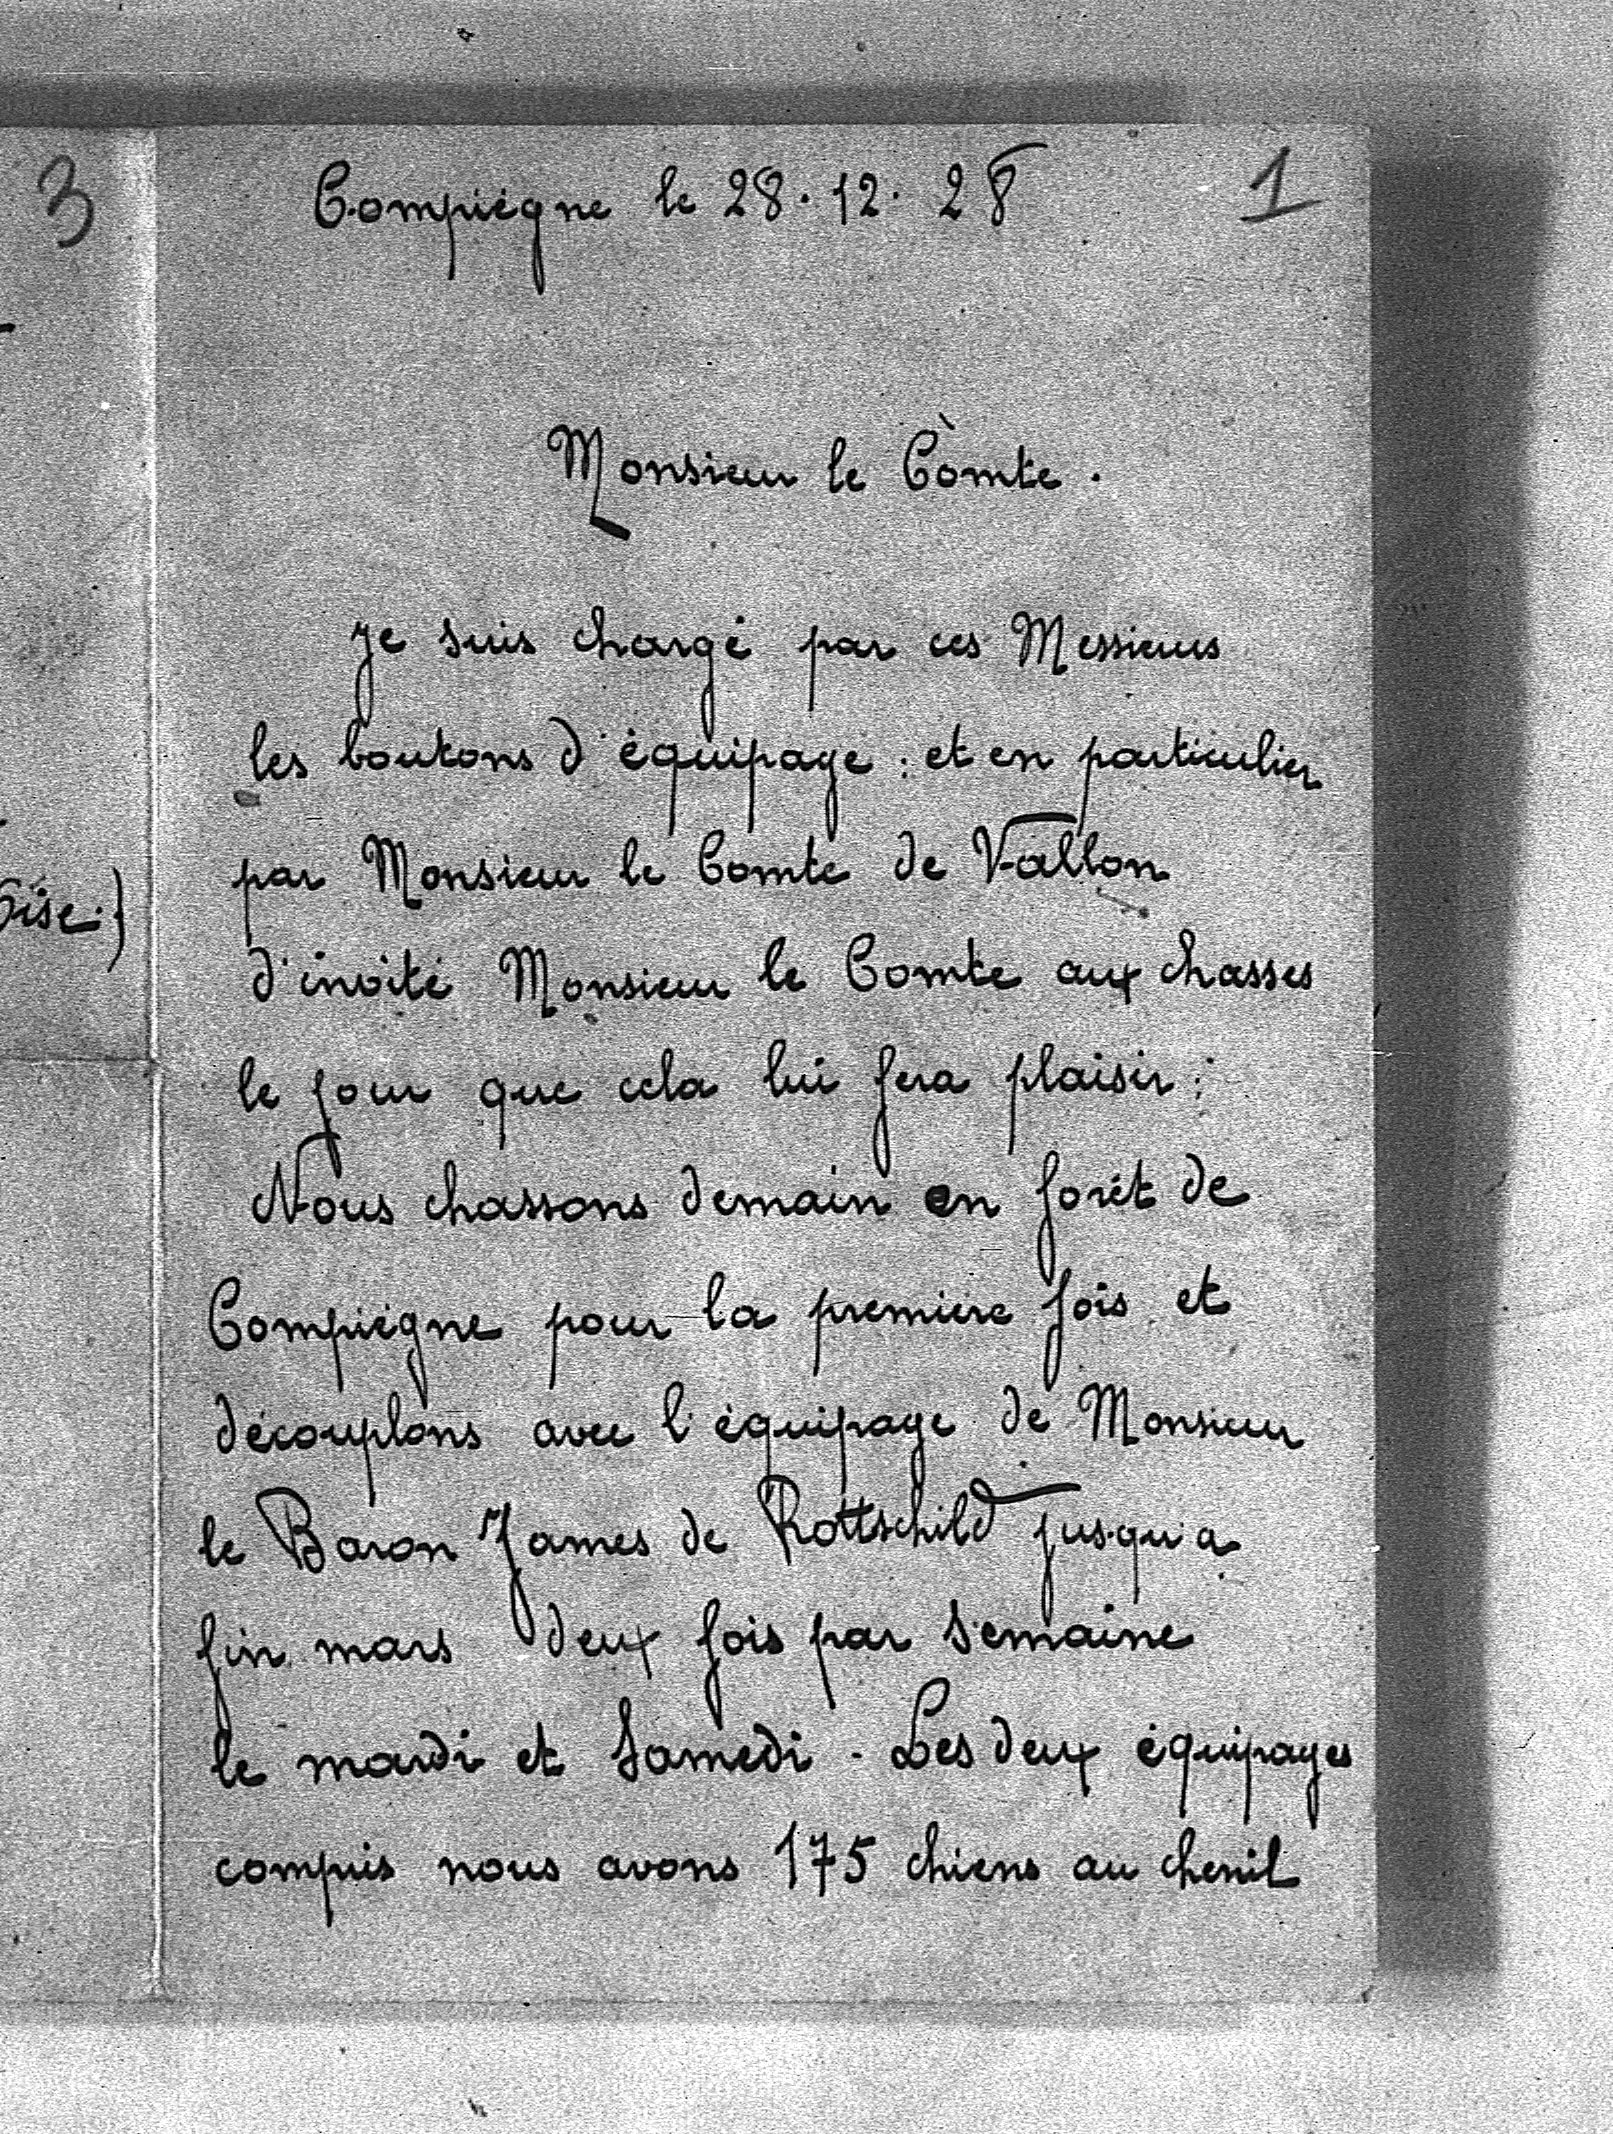 3
Oise.)
Compiègne le 28.12.28
1
Monsieur le Comte.
Je suis chargé par ces Messieurs
les boutons d'équipage: et en particulier
par Monsieur le Comte de Vallon
d'invité Monsieur le Comte aux chasses
le jour que cela lui fera plaisir:
Nous chassons demain en forêt de
Compiègne pour la première fois et
découplons avec l'équipage de Monsieur
le Baron James de Rottschild jusqu'a
fin mars deux fois par semaine
le mardi et Samedi. Les deux équipages
compris nous avons 175 chiens au chenil